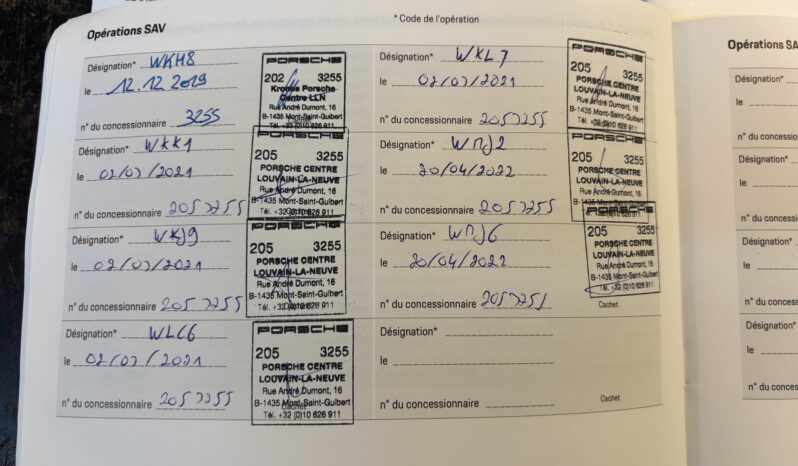 * Code de l'opération
Opérations SAV
Désignation* WKH8
le 12.12 2019
n° du concessionnaire 3255
PORSCHE
202 3255
Kronos Porsche
Centre LLN
Rue André Dumont, 16
B-1435 Mont-Saint-Guibert
Tél. +32 (0)10 626 911
Désignation* WKK1
le 02/07/2021
n° du concessionnaire 2053255
PORSCHE
205 3255
PORSCHE CENTRE
LOUVAIN-LA-NEUVE
Rue André Dumont, 16
B-1435 Mont-Saint-Guibert
Tél. +32 (0)10 626 911
Désignation* WKJ9
le 02/07/2021
n° du concessionnaire 2053255
PORSCHE
205 3255
PORSCHE CENTRE
LOUVAIN-LA-NEUVE
Rue André Dumont, 16
B-1435 Mont-Saint-Guibert
Tél. +32 (0)10 626 911
Désignation* WLC6
le 02/07/2021
n° du concessionnaire 2053255
PORSCHE
205 3255
PORSCHE CENTRE
LOUVAIN-LA-NEUVE
Rue André Dumont, 16
B-1435 Mont-Saint-Guibert
Tél. +32 (0)10 626 911
Cachet
Désignation* WKL7
le 02/07/2021
n° du concessionnaire 2053255
PORSCHE
205 3255
PORSCHE CENTRE
LOUVAIN-LA-NEUVE
Rue André Dumont, 16
B-1435 Mont-Saint-Guibert
Tél. +32 (0)10 626 911
Désignation* WMJ2
le 20/04/2022
n° du concessionnaire 2053255
PORSCHE
205 3255
PORSCHE CENTRE
LOUVAIN-LA-NEUVE
Rue André Dumont, 16
B-1435 Mont-Saint-Guibert
Désignation* WMJ6
le 20/04/2022
n° du concessionnaire 2053255
PORSCHE
205 3255
PORSCHE CENTRE
LOUVAIN-LA-NEUVE
Rue André Dumont, 16
B-1435 Mont-Saint-Guibert
Tél. +32 (0)10 626 911
Cachet
Désignation*
le
n° du concessionnaire
Cachet
Opérations SA
Désignation*
le
n° du conces
Désignation*
le
n° du conces
Désignation*
le
n° du conce
Désignation
le
n° du conc